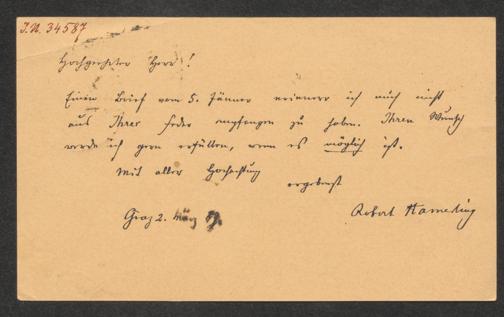 I.N. 34587
Hochgeehrter Herr!
Einen Brief vom 5. Jänner erinnere ich mich nicht
aus Ihrer Feder empfangen zu haben. Ihren Wunsch
werde ich gern erfüllen, wenn es möglich ist.
Mit aller Hochachtung
ergebenst
Graz 2. März
Robert Hamerling